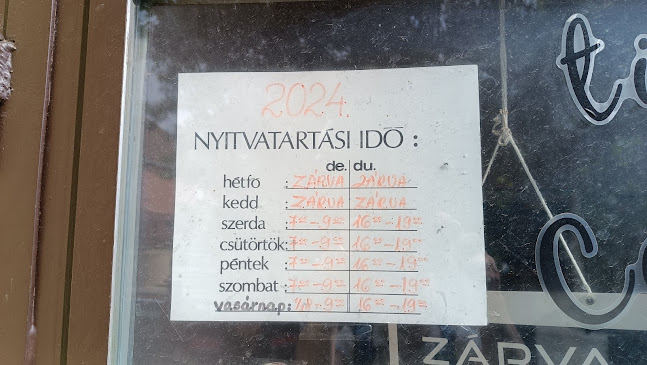 2024.
NYITVATARTÁSI IDŐ :
de. du.
hétfő : ZÁRVA ZÁRVA
kedd : ZÁRVA ZÁRVA
szerda : 7⁰⁰-9⁰⁰ 16⁰⁰-19⁰⁰
csütörtök: 7⁰⁰-9⁰⁰ 16⁰⁰-19⁰⁰
péntek : 7⁰⁰-9⁰⁰ 16⁰⁰-19⁰⁰
szombat : 7⁰⁰-9⁰⁰ 16⁰⁰-19⁰⁰
vasárnap: 9⁰⁰ 16⁰⁰-19⁰⁰
ZÁRVA